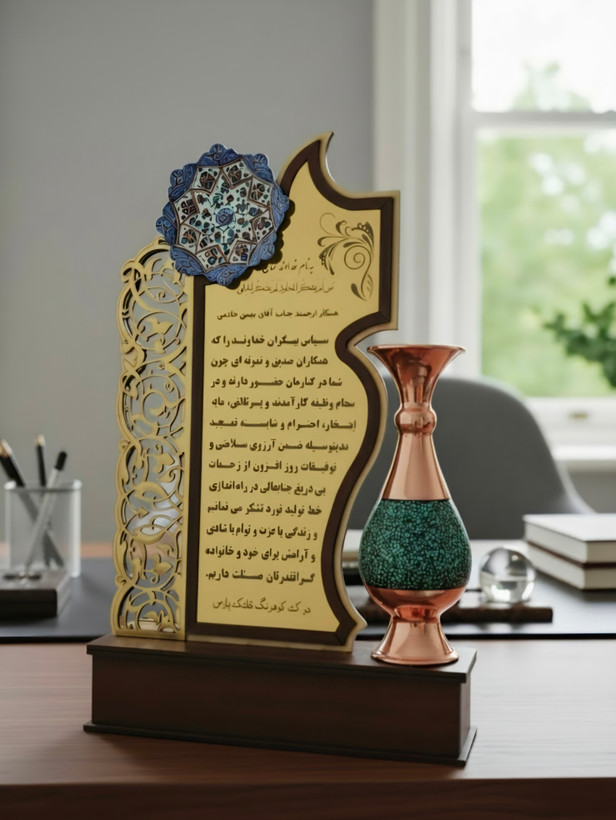 به نام خداوند
همکار ارجمند جناب آقای بهمن حاتمی
سپاس بیکران خداوند را که
همکاران صدیق و نمونه ای چون
شما در کنارمان حضور دارند و در
انجام وظیفه کارآمدند و پرتلاش، مایه
افتخار، احترام و شایسته تمجید
بدینوسیله ضمن آرزوی سلامتی و
توفیقات روز افزون از زحمات
بی دریغ جنابعالی در راه اندازی
خط تولید نورد تشکر می نمائیم
و زندگی با عزت و توام با شادی
و آرامش برای خود و خانواده
گرانقدرتان مسئلت داریم.